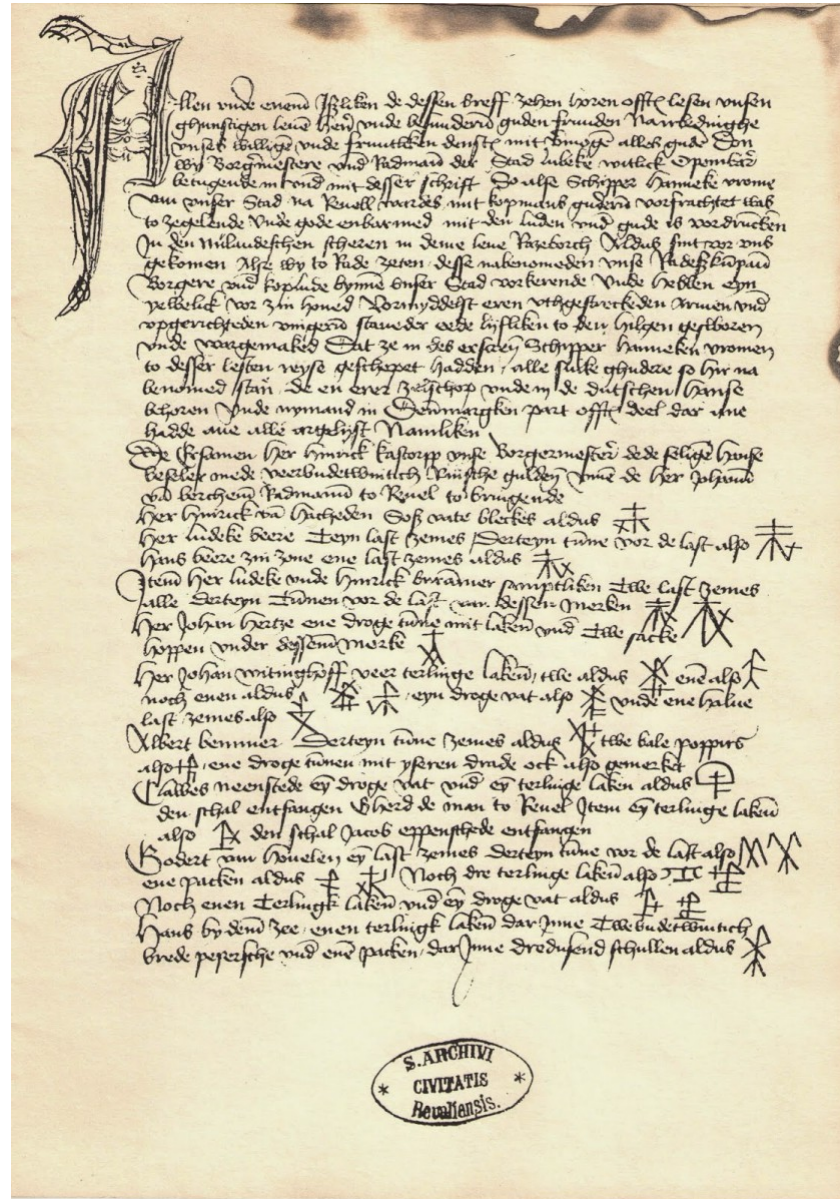 Allen unde enem Jsliken de dessen breff zehen horen offte lesen unsen
ghunstigen leven hern unde besunderen guden frunden Na erbedinghe
unses willigen unde fruntliken denstes mit vmoge alles guden Don
wy Borgermestere und Radmanne der Stad lubeke witlick Openbar
betugende in und mit desser schrift So alse Schipper hanneke vrome
van unser Stad na Revell wardes mit kopmans guderen vorfrachtet was
to zegelende Unde gode enbarmed mit den luden und gude is vordruncken
In den Nilandeschen scheren in deme leve Razeborch Aldus sint vor uns
gekomen Alse wy to Rade zeten desse nabenomeden unse Radeskumpane
Borgere und koplude bynnen unser Stad vorkerende Unde hebben eyn
yewelick vor zin hoved Vormyddelst eren uthgestreckeden armen und
upgerichteden vingeren staveder eede lyfliken to den hilgen gesworen
unde waergemaked Dat ze in des erscreven Schipper hanneken vromen
to desser lesten reyse geschepet hadden alle sulke ghudere so hir na
benomed stan de en erer zelschop unde in de dutschen hanse
behoren Unde nymand in Dennmargken part offte deel dar ane
hadde ane alle argelist Namliken
De Ersamen her hinrick kastorpp unse Borgermester dede seligen hanse
beseler mede veerundetwintich Rinsche gulden umme de her Johann
van berchem Radmanne to Revel to bringende
her hinrick van hacheden Soss vate bleckes aldus
her ludeke beere Teyn last zemes Derteyn tunne vor de last also
hans beere zin zone ene last zemes aldus
Item her ludeke unde hinrick bramer semptliken Twe last zemes
alle derteyn Tunnen vor de last van dessen merken
her Johan hertze ene droge tunne mit laken und Twe sacke
hoppen under dessem merke
her Johan witinghoff veer terlinge laken, twe aldus enen also
noch enen aldus eyn droge vat also unde ene halve
last zemes also
Albert bemmer Derteyn tunne zemes aldus twe bale poppirs
also ene droge tunnen mit yseren drade ock also gemerket
Clawes neenstede eyn droge vat und eyn terlinge laken aldus
den schal entfangen Gherd de man to Revel Item eyn terlinge laken
also den schal Jacob eppenschede entfangen
Godert van hovelen eyn last zemes derteyn tunne vor de last also
ene packen aldus Noch dre terlinge laken also
Noch enen Terlingk laken und eyn droge vat aldus
hans by dem zee enen terlingk laken dar Inne Twe undetwintich
brede pepersche und enen packen dar Inne dredusend schullen aldus
S. ARCHIVI
CIVITATIS
Revaliensis.